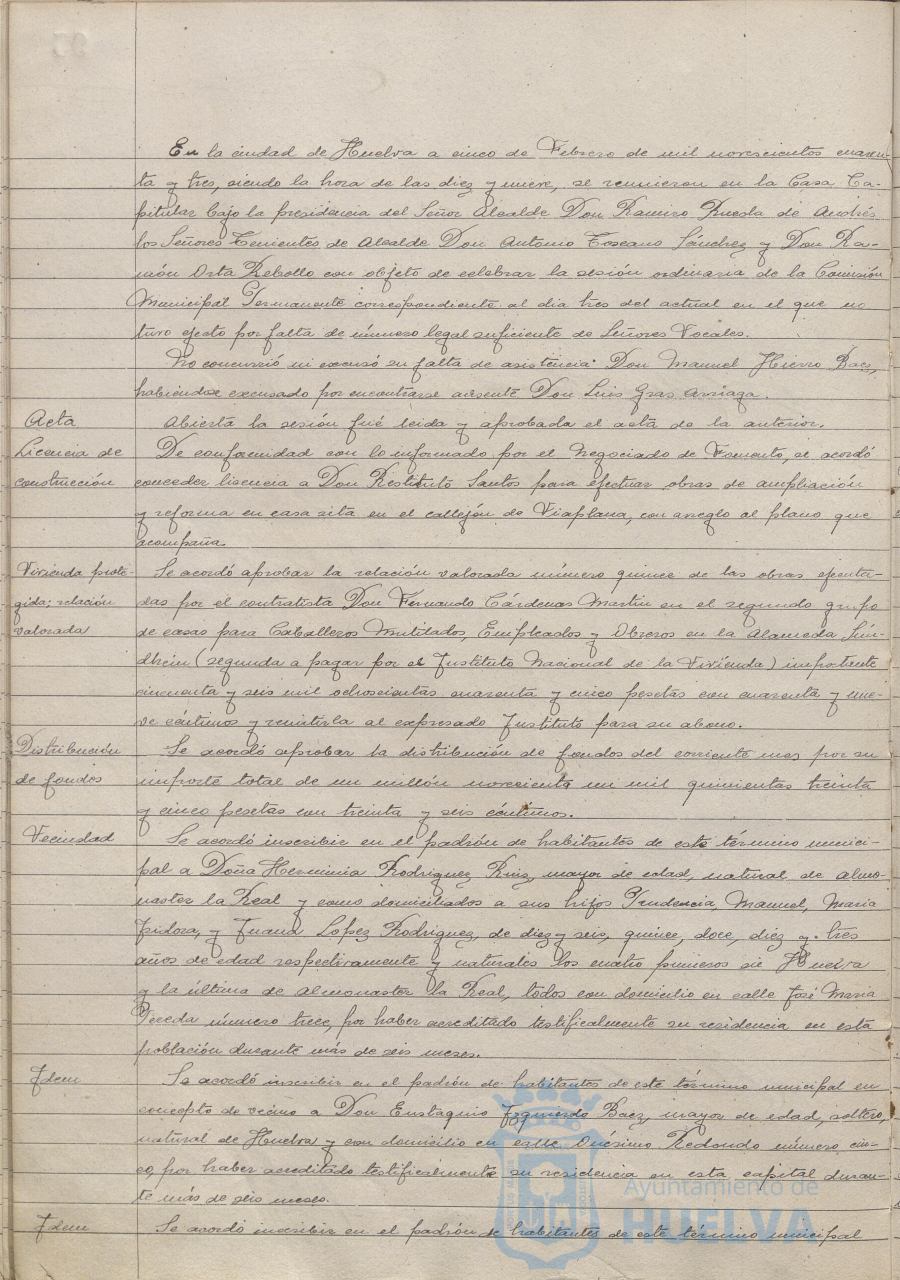 En la ciudad de Huelva a cinco de Febrero de mil novescientos cuaren-
ta y tres, siendo la hora de las diez y nueve, se reunieron en la Casa Ca-
pitular bajo la presidencia del Señor Alcalde Don Ramiro Rueda de Andrés
los Señores Tenientes de Alcalde Don Antonio Toscano Sánchez y Don Ra-
món Orta Rebollo con objeto de celebrar la sesión ordinaria de la Comisión
Municipal Permanente correspondiente al dia tres del actual en el que no
tuvo efecto por falta de número legal suficiente de Señores Vocales.
No concurrió ni excusó su falta de asistencia Don Manuel Hierro Baez,
habiéndose excusado por encontrarse ausente Don Luis Gras Arriaga.
Acta
Abierta la sesión fué leida y aprobada el acta de la anterior.
Licencia de
construcción
De conformidad con lo informado por el Negociado de Fomento, se acordó
conceder liscencia a Don Restituto Santos para efectuar obras de ampliación
y reforma en casa sita en el callejón de Viaplana, con areglo al plano que
acompaña.
Vivienda prote-
gida; relación
valorada
Se acordó aprobar la relación valorada número quince de las obras ejecuta-
das por el contratista Don Fernando Cárdenas Martin en el segundo grupo
de casas para Caballeros Mutilados, Empleados y Obreros en la Alameda Sún-
dhein (segunda a pagar por el Instituto Nacional de la Vivienda) importante
cincuenta y seis mil ochroscientas cuarenta y cinco pesetas con cuarenta y nue-
ve céntimos y remitirla al expresado Instituto para su abono.
Distribución
de fondos
Se acordó aprobar la distribución de fondos del corriente mes por su
importe total de un millón novecienta un mil quinientas treinta
y cinco pesetas con treinta y seis céntimos.
Vecindad
Se acordó inscribir en el padrón de habitantes de este término munici-
pal a Doña Herminia Rodriguez Ruiz, mayor de edad, natural de Almo-
naster la Real y como domiciliados a sus hijos Prudencia, Manuel, Maria
Isidora, y Juana Lopez Rodriguez, de diez y seis, quince, doce, diez y tres
años de edad respectivamente y naturales los cuatro primeros de Huelva
y la última de Almonaster la Real, todos con domicilio en calle José Maria
Pereda número trece, por haber acreditado testificalmente su residencia en esta
población durante más de seis meses.
Idem
Se acordó inscribir en el padrón de habitantes de este término municipal en
concepto de vecino a Don Eustaquio Izquierdo Baez, mayor de edad, soltero,
natural de Huelva y con domicilio en calle Onésimo Redondo número cin-
co, por haber acreditado testificalmente su residencia en esta capital duran-
te más de seis meses.
Idem
Se acordó inscribir en el padrón de habitantes de este término municipal
Ayuntamiento de
HUELVA